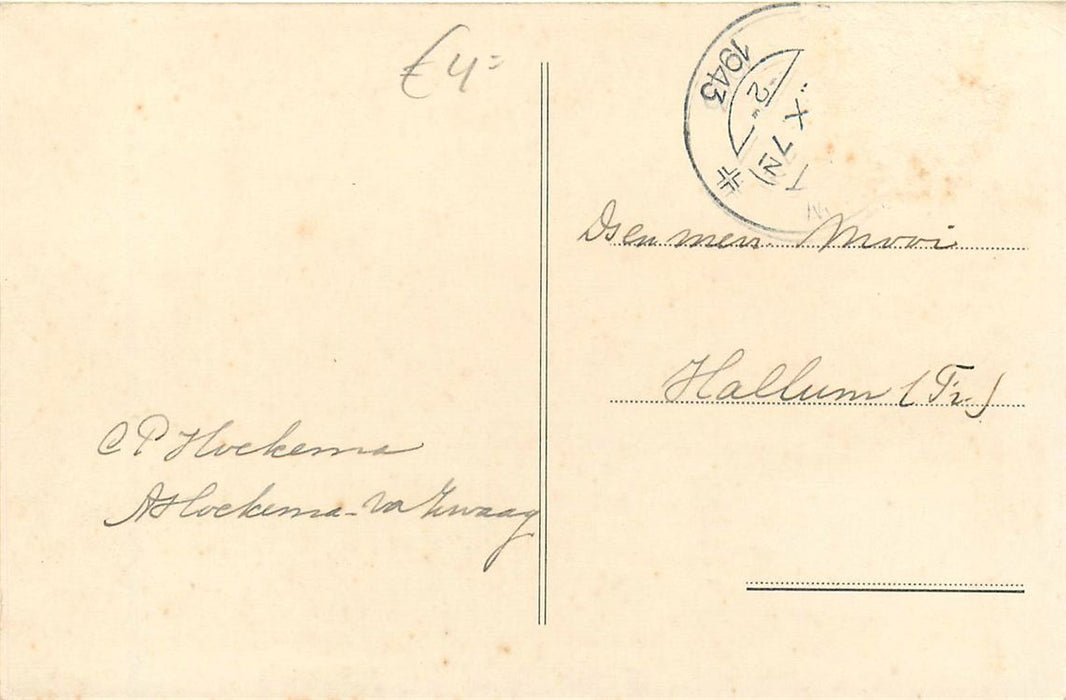 € 4=
1943
X 7 N
Ds en mevr. Mooi
Hallum (Fr.)
C P Hoekema
A Hoekema - va Zwaag